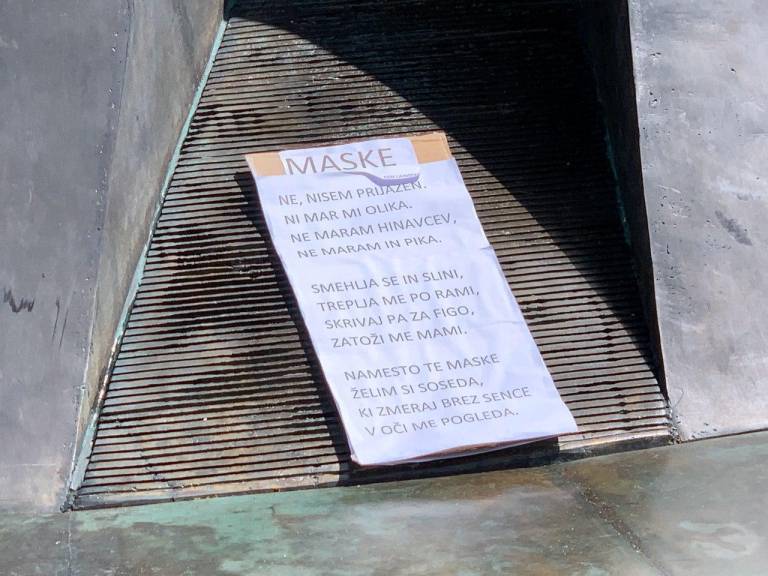 MASKE
NE, NISEM PRIJAZEN.
NI MAR MI OLIKA.
NE MARAM HINAVCEV,
NE MARAM IN PIKA.
SMEHLJA SE IN SLINI,
TREPLJA ME PO RAMI,
SKRIVAJ PA ZA FIGO,
ZATOŽI ME MAMI.
NAMESTO TE MASKE
ŽELIM SI SOSEDA,
KI ZMERAJ BREZ SENCE
V OČI ME POGLEDA.